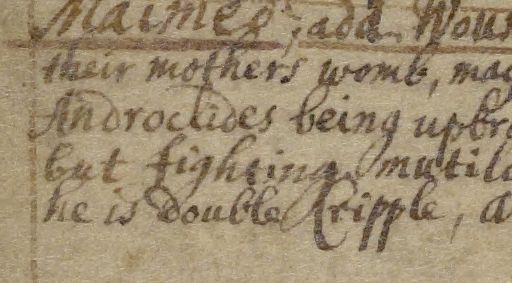 Maimed; add. Wou
their mothers womb, ma
Androclides being upbr
but fighting. mutil
he is double Cripple, a